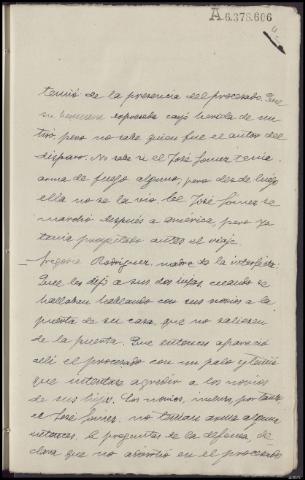 A 6.378.606
temió de la presencia del procesado. Que
su hermana expresada cayó herida de un
tiro, pero no sabe quien fue el autor del
disparo. No sabe si el José Gomez tenia
arma de fuego alguna, pero desde luego
ella no se la vió. El José Gomez se
marchó después a América, pero ya
tenia proyectado antes el viaje.
Rodriguez, madre de la interfecta.
Que les dejó a sus dos hijas cuando se
hallaban hablando con sus novios a la
puerta de su casa, que no salieron
de la puerta. Que entonces apareció
allí el procesado con un palo y temió
que intentara agredir a los novios
de sus hijas. Los novios,
el José Gomez, no tenian arma alguna
entonces. A preguntas de la defensa, de-
clara que no advirtió en el procesado